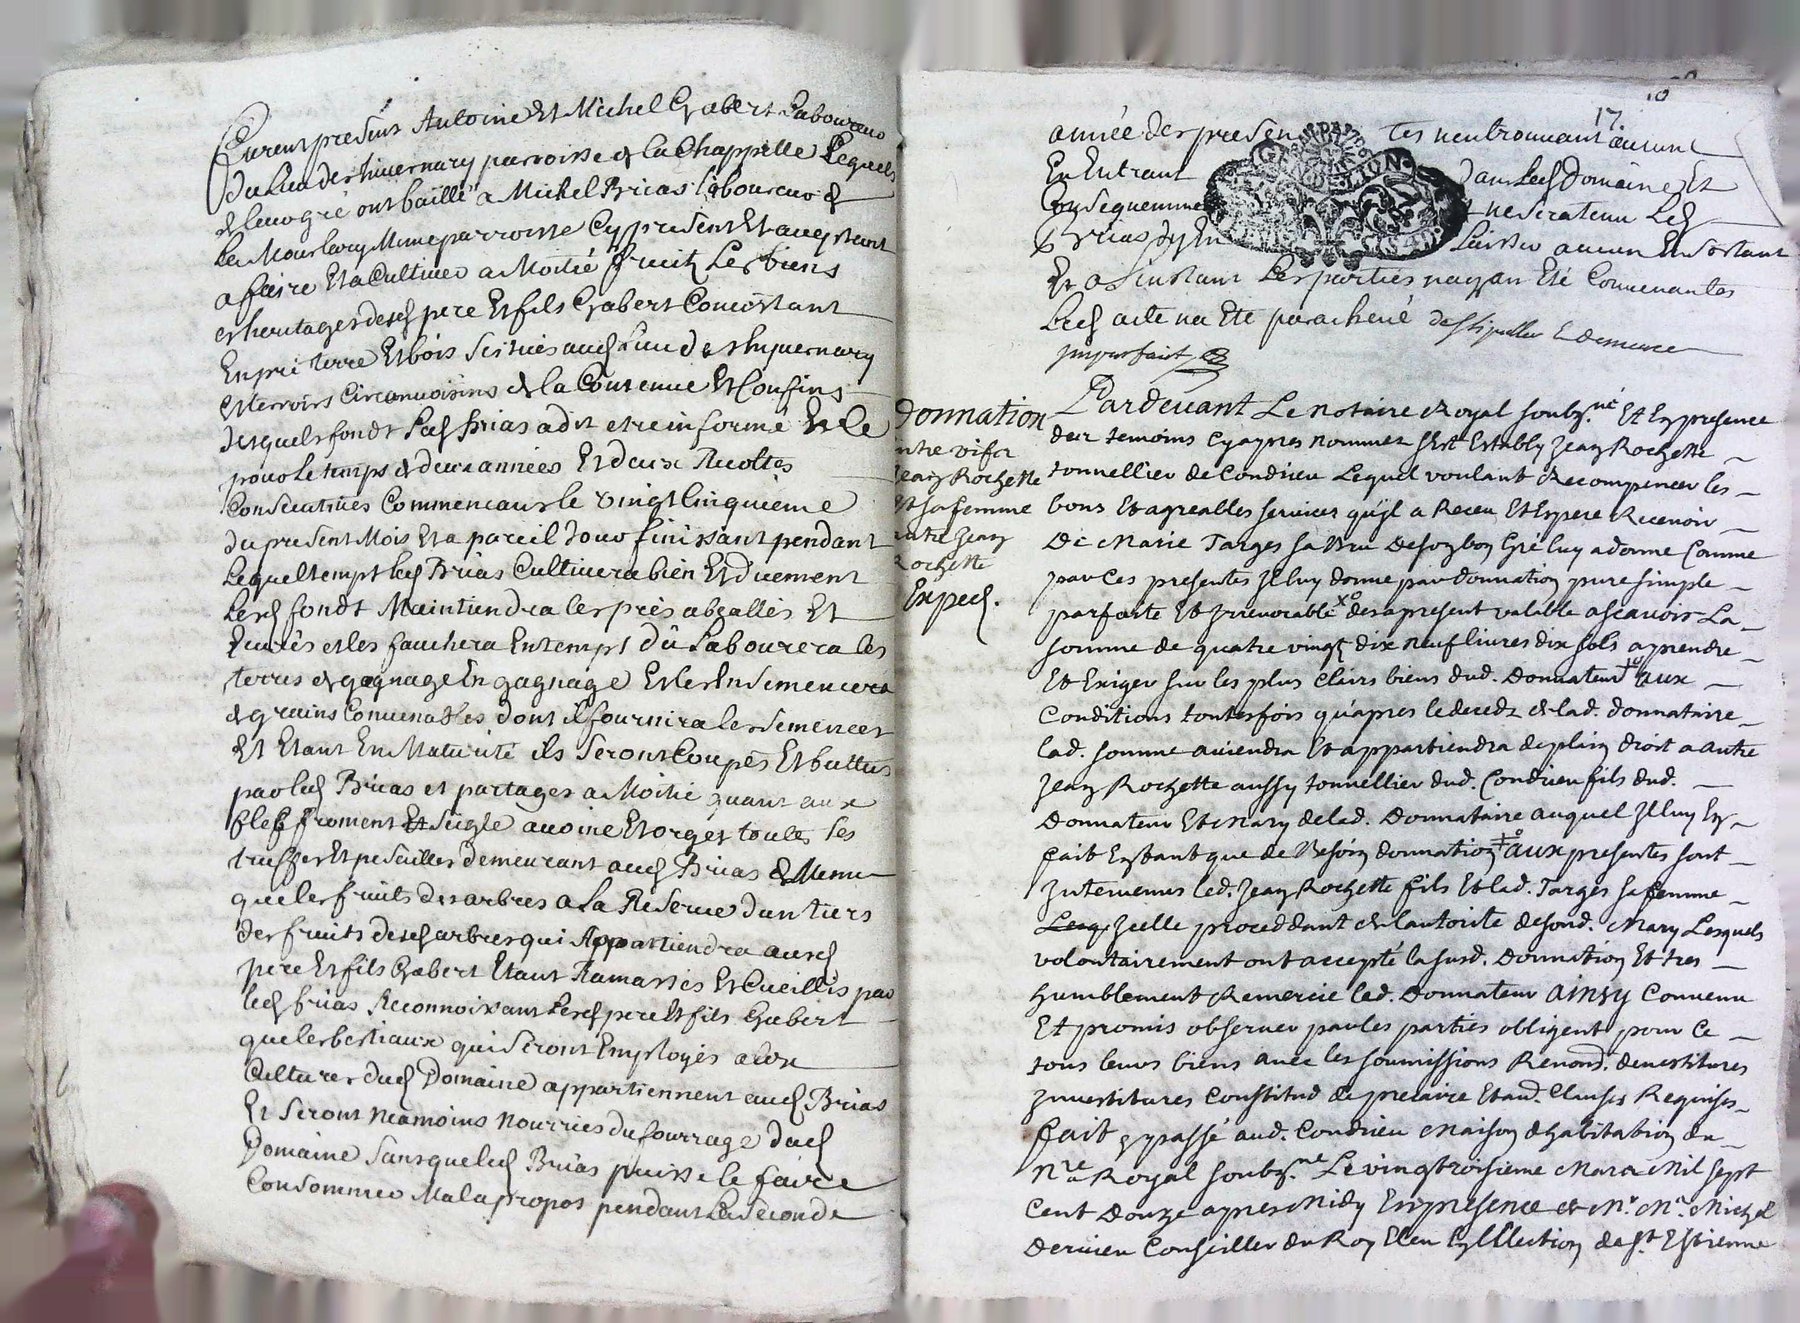 furent présent Antoine Et Michel Gabert Laboureurs
du Lieu des hiuernary parroisse de la Chappelle Lequels
de leur gré ont baillé a Michel Brias laboureur de
Mesme parroisse Cy present Et acceptant
a faire Et a Cultiver a Moitié fruit Les biens
et heritages desd pere Et fils Gabert Consistant
En pré terre Et bois Scitués aud Lieu des hyuernary
Et terroirs Circonuoisins de la Contenue Et Confins
desquels fonds Led Brias a dit etre informé Et Ce
pour le temps de deux années Et deux Recoltes
Consecutives Commencant le vingt Cinquieme
du present Mois Et a pareil Jour finissant pendant
Lequel temps led Brias Cultivera bien Et duement
Lesd fonds Maintiendra les prés abeallés Et
Curés et les fauchera En temps dû Labourera les
terres de gagnage En gagnage Et les Ensemencera
de grains Conuenables dont il fournira les Semences
Et Etant En Maturité ils Seront Coupés Et battus
par led Brias et partagés a Moitié quant aux
bled froment Et Seigle avoine Et orges toutes les
truffes Et pesailles demeurant aud Brias de Meme
que les fruits des arbres a La Reserue d'un tiers
des fruits desd arbres qui Appartiendra auxd
pere Et fils Gabert Etant Ramassés Et Cueillis par
led brias Reconnoissant Lesd pere Et fils Gabert
que les bestiaux qui Seront Employés aux
Cultures dud Domaine appartiennent aud Brias
Et Seront neamoins nourries du fourrage dud
Domaine Sans que led Brias puisse le faire
Consommer Mal a propos pendant La Seconde
17
année des presentes n'en trouvant aucune
En Entrant Dans Led Domaine Et
Consequemment ne sera tenu Led
Brias d'y En Laisser aucun En Sortant
Et a L'instant Les parties n'ayan Eté Convenantes
Led acte n'a Eté parachevé de Stipuller Et demeure
imparfait
LION
donnation
entre vifs
Jean Rochette
Et sa femme
autre Jean
Rochette
Exped.
Pardeuant Le Notaire Royal soubzné Et En presence
des temoins Cy apres nommes s'est Estably Jean Rochette
tonnellier de Condrieu Lequel voulant Recompencer les
bons Et agreables services qu'jl a Receu Et Espere Recevoir
De Marie Targes sa Bru De son bon Gré luy a donne Comme
par Ces presentes Jl luy donne par donnation pure simple
parfaite Et Irrevocable des apresent valable a scavoir La
somme de quatre vingt dix neuf livres dix sols a prendre
Et Exiger sur les plus Clairs biens dud. Donnateur aux
Conditions toutesfois qu'apres le decedz de lad. donnataire
lad. somme aviendra Et appartiendra de plain droit a autre
Jean Rochette aussy tonnellier dud. Condrieu fils dud.
Donnateur Et Mary de lad. Donnataire auquel Jl luy En
fait En tant que de Besoin donnation aux presentes sont
Intervenus led. Jean Rochette fils Et lad. Targes sa femme
Lesq Icelle proceddant de l'autorite de sond. Mary Lesquels
volontairement ont accepté la susd. Donnation Et tres
humblement Remercie led. Donnateur AINSY Convenu
Et promis observer par les parties obligent pour Ce
tous leurs biens avec les soumissions Renond. devestitures
Investitures Constitud de precaire Et aud. Clauses Requises
fait Et passé aud. Condrieu Maison d'habitation du
Nre Royal soubzné. Le vingtroisieme Mars Mil sept
Cent Douze apres Midy En presence de Mr. Me. Michel
Dervieu Conseiller du Roy Eleu En l'Election de St Estienne